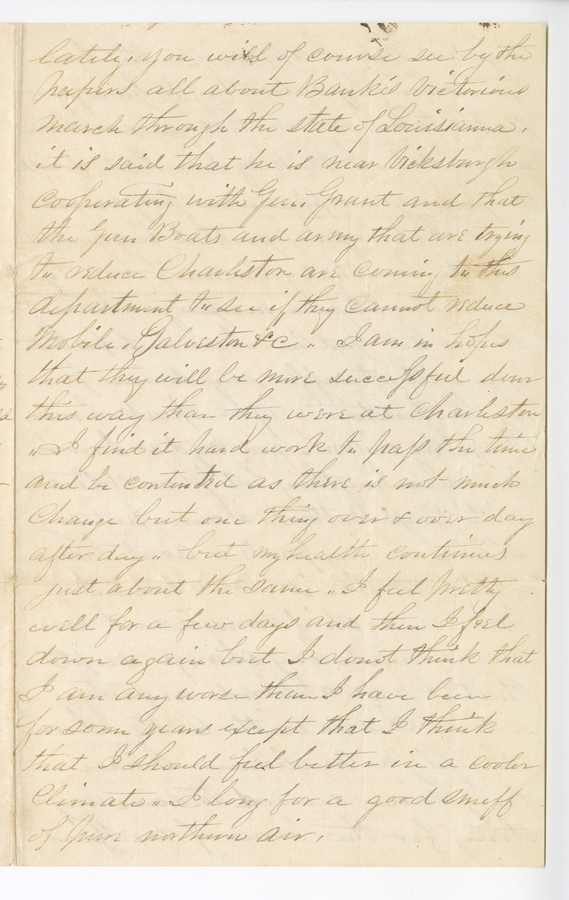 lately, you will of course see by the
papers all about Bank's victorious
march through the state of Louisianna,
it is said that he is near Vicksburgh
cooperating with Gen. Grant and that
the Gun Boats and army that are trying
to reduce Charleston are coming to this
department to see if they cannot reduce
Mobile, Galveston &c " I am in hopes
that they will be more successful down
this way than they were at Charleston
" I find it hard work to pass the time
and be contented as there is not much
change but one thing over & over day
after day " but my health continues
just about the same " I feel pretty
well for a few days and then I feel
down again but I donot think that
I am any worse than I have been
for some years except that I think
that I should feel better in a cooler
climate " I long for a good snuff
of pure northern air.